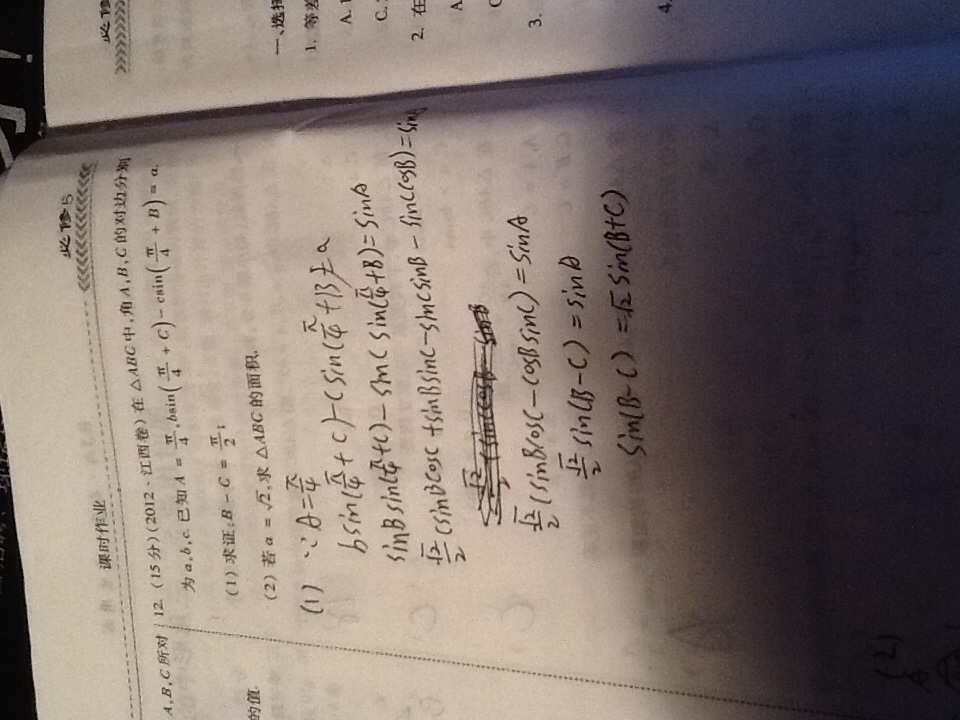 必修5
课时作业
A,B,C所对
12.(15分)(2012·江西卷)在△ABC中,角A,B,C的对边分别
为a,b,c.已知A=π/4,bsin(π/4+C)-csin(π/4+B)=a.
(1)求证:B-C=π/2;
(2)若a=√2,求△ABC的面积.
的值.
(1) ∵A=π/4
bsin(π/4+C)-csin(π/4+B)=a
sinBsin(π/4+C)-sinCsin(π/4+B)=sinA
√2/2(sinBcosC+sinBsinC-sinCsinB-sinCcosB)=sinA
√2/2(sinBcosC-cosBsinC)=sinA
√2/2sin(B-C)=sinA
sin(B-C)=√2sin(B+C)
(2)
必修
一、选择
1.等差
A.
C.
2.在
A
C
3.
4.